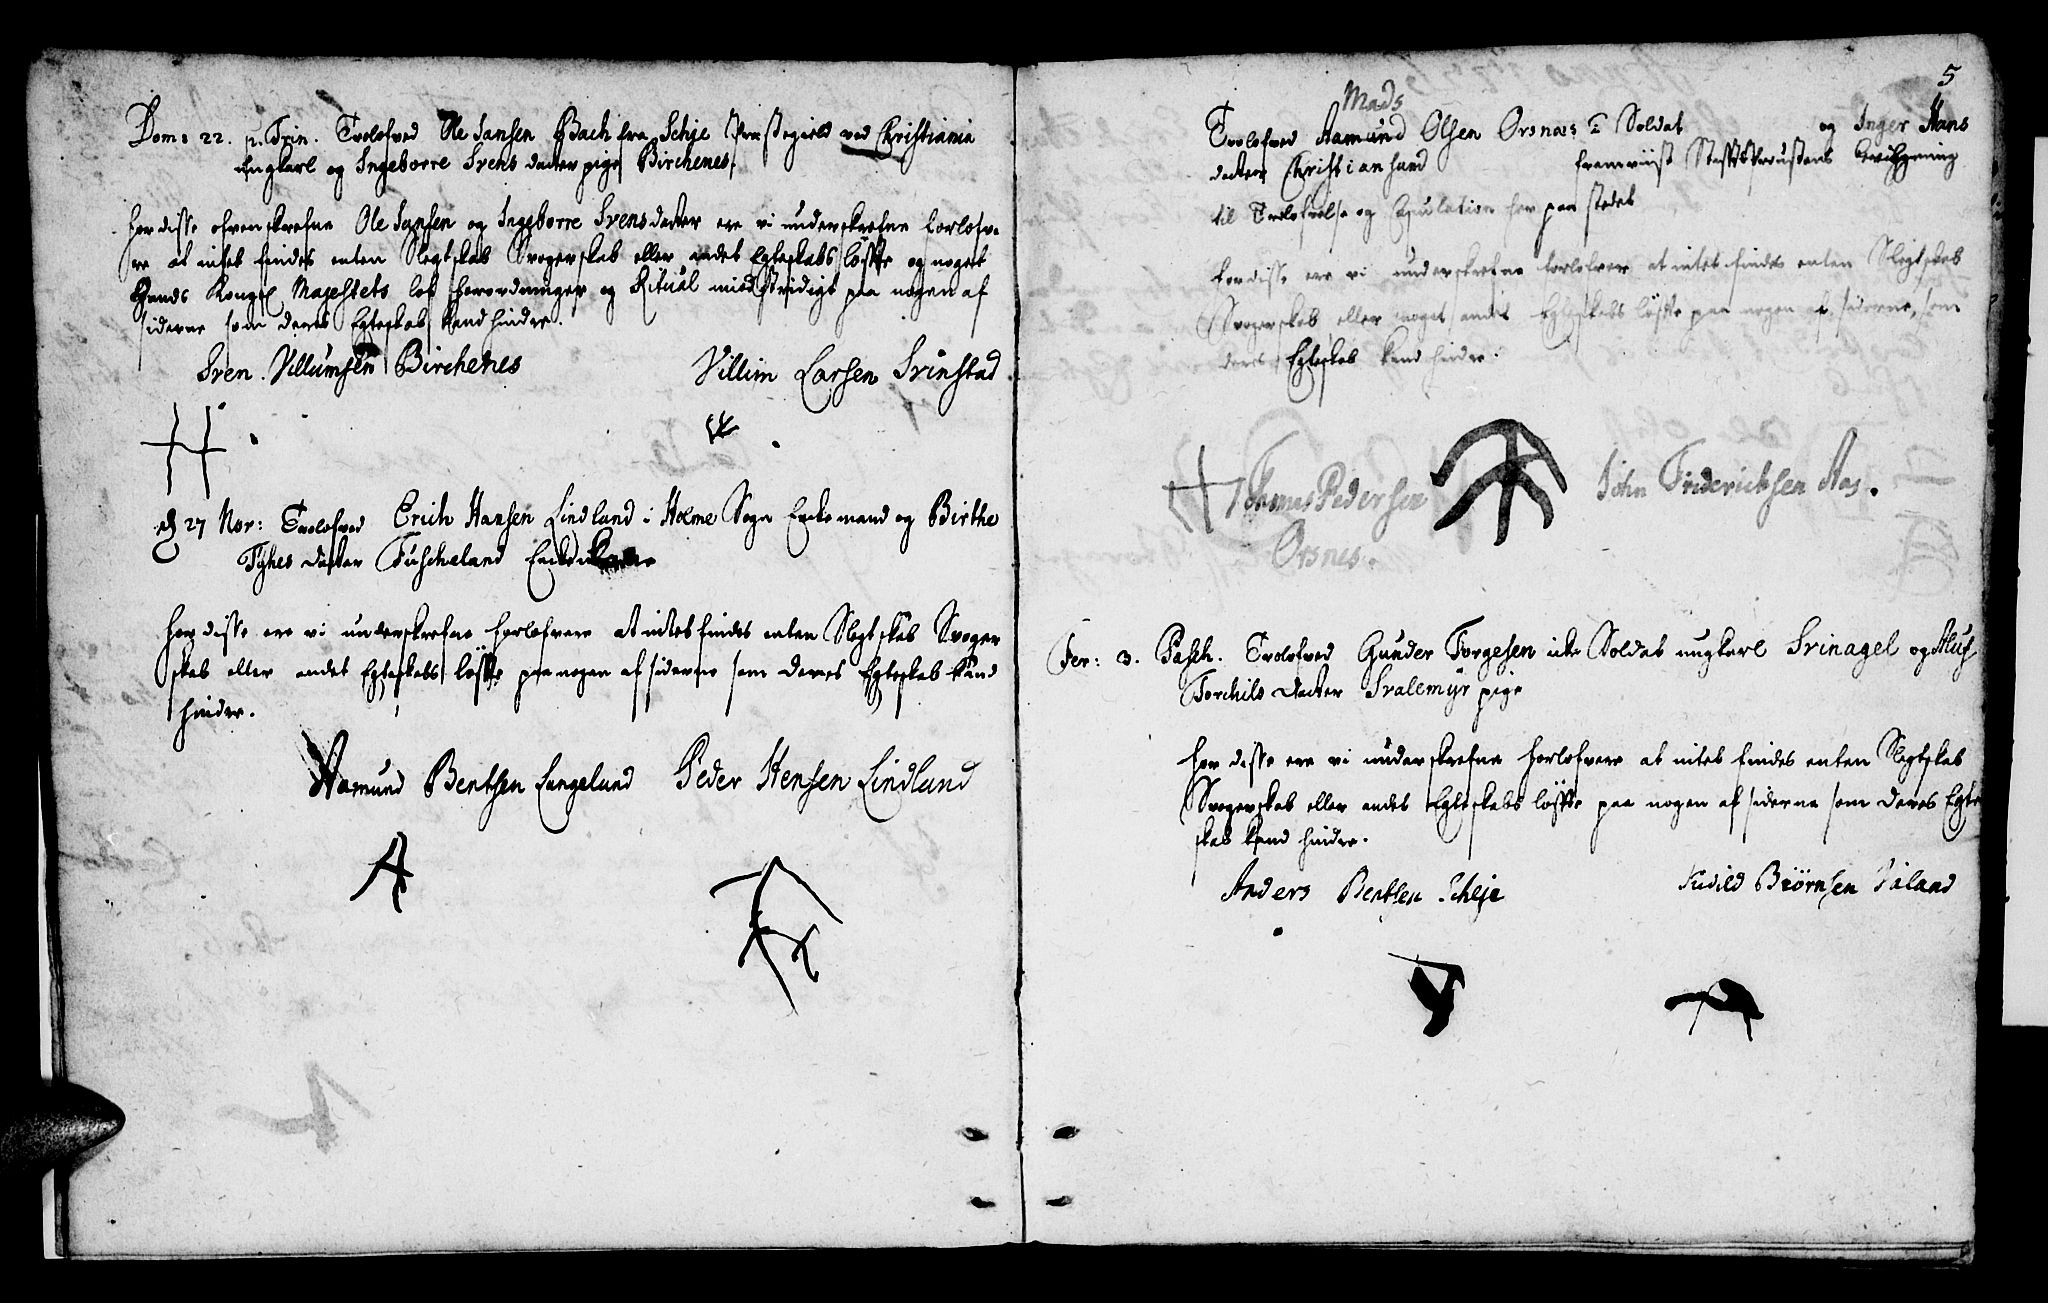 Dom: 22. p. Trin. Trolofved Ole Jansen Bach fra Schje Præstegield ved Christiania
Ungkarl og Ingeborre Svens datter pige Birchenes.
For disse ofvenskrefne Ole Jansen og Ingeborre Svensdatter ere vi underskrefne forlofve-
re at intet findes enten Slegtskab Svogerskab eller andet Egteskabs løfte og noget
Hands Kongl Majestets lov forordninger og Ritual modstridigt paa nogen af
siderne som deres Egteskab kand hindre.
Sven Villumsen Birchenes
Villim Larsen Svinstad
d 27 Nov: Trolofved Erich Hansen Lindland i Holme Sogn Enkemand og Birthe
Tyhes datter Fuscheland
for disse ere vi underskrefne forlofvere at intet findes enten Slegtskab Svoger
skab eller andet Egteskabs løfte paa nogen af siderne som deres Egteskab kand
hindre.
Aamund Bentsen Langeland Peder Hensen Lindland
A
5
Mads
Trolofved Aamund Olsen Orsnæs Soldat og Inger Hans
datter Christiansand fremviist Stiftsprovstens bevilgning
til Trolofvelse og Copulation her paa stedet
for disse ere vi underskrefne forlofver at intet findes enten Slegtskab
Svogerskab eller noget andet Egteskabs løfte paa nogen af siderne, som
deres Egteskab kand hindre.
Thomas Pedersen
Orsnes.
John Friderichsen Aas.
Fer: 3. Pasch. Trolofved Gunder Torgesen icke Soldat ungkarl Svinagel og Aluf
Torchils datter Svalemyr pige
for disse ere vi underskrefne forlofvere at intet findes enten Slegtskab
Svogerskab eller andet Egteskabs løfte paa nogen af siderne som deres Egte
skab kand hindre.
Anders Bentsen Scheje
Biørnsen